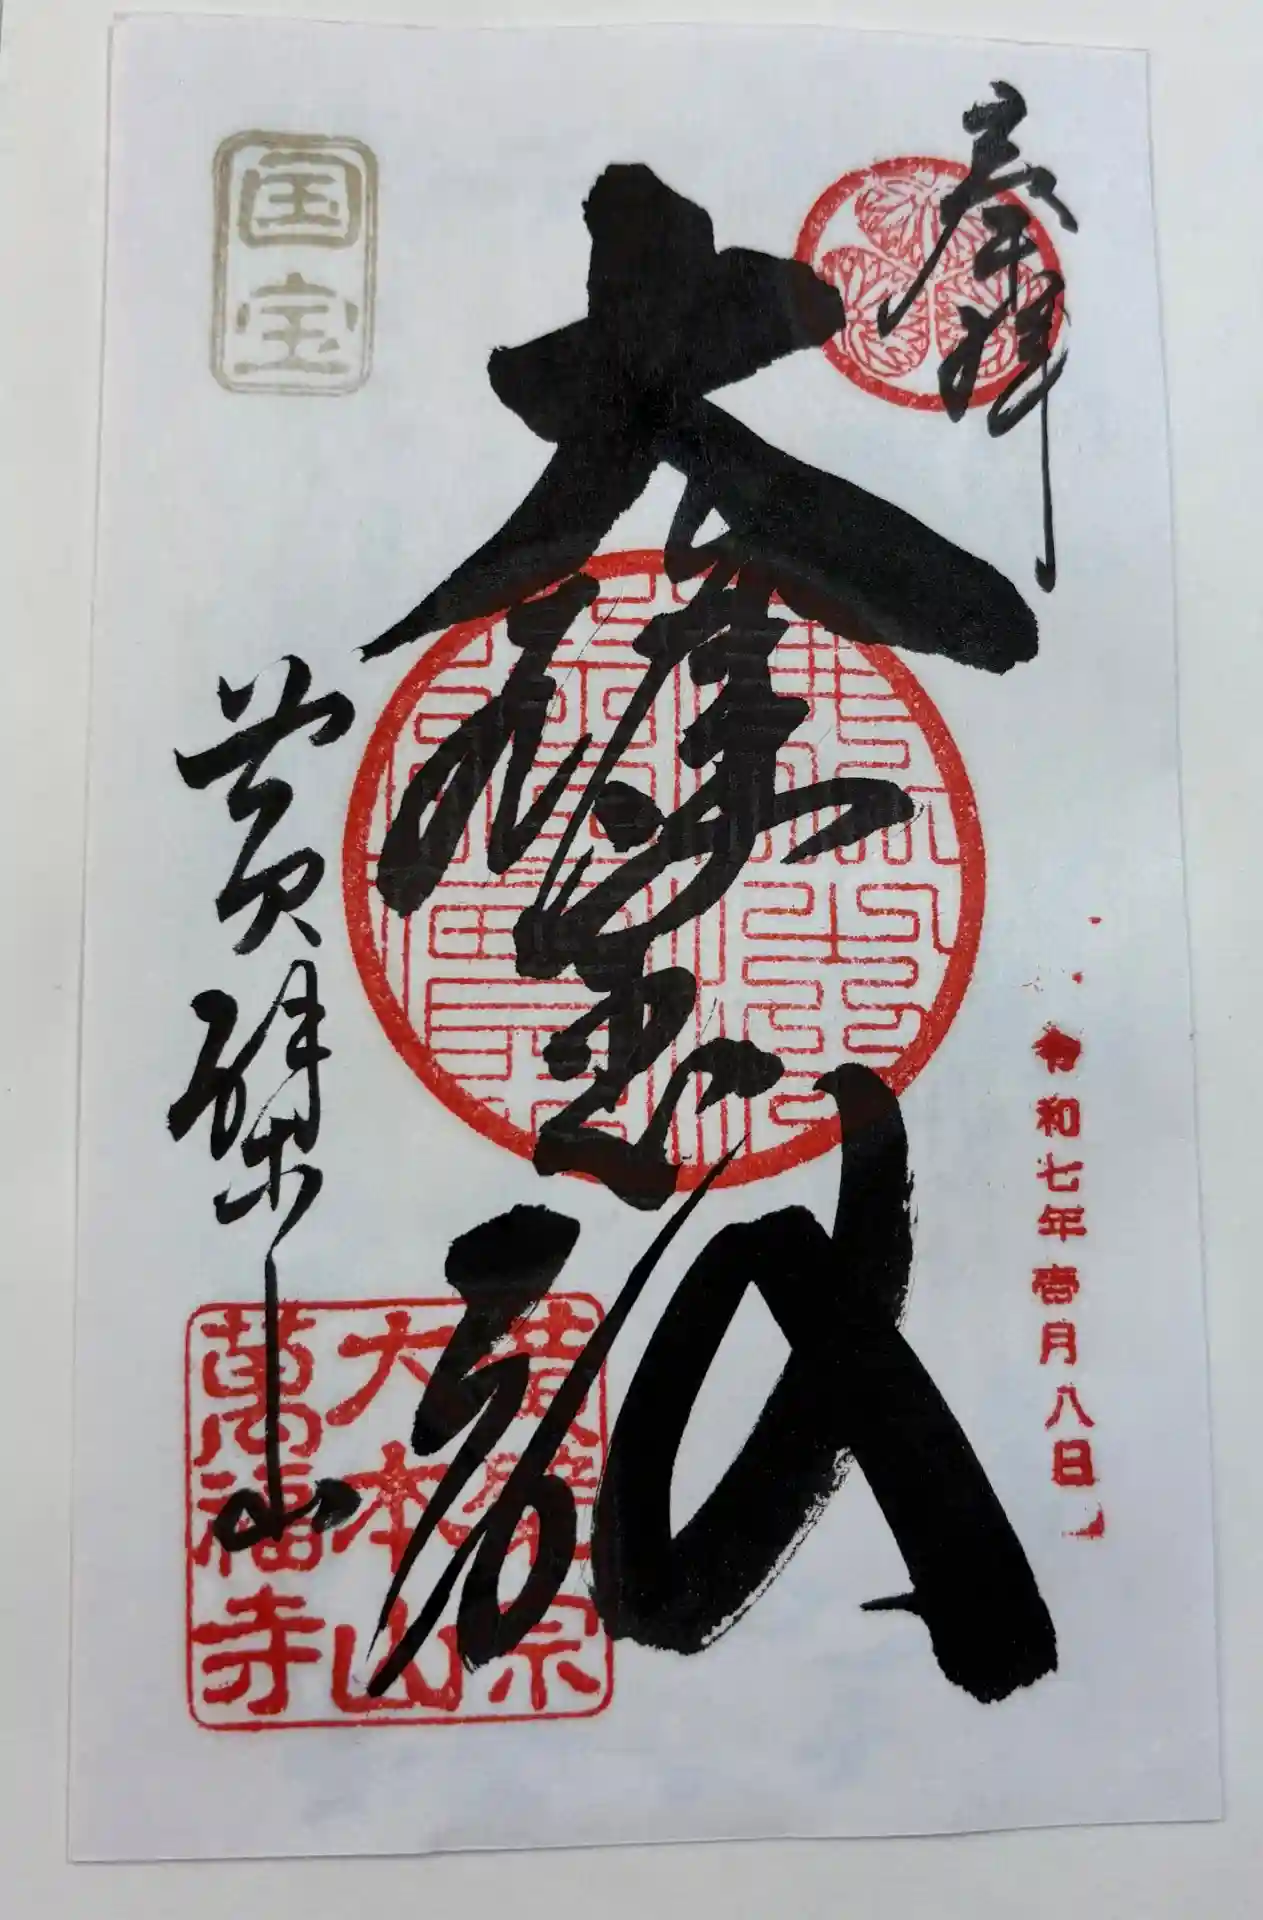 奉拝
令和七年壱月八日
大雄宝殿
国宝
黄檗山
黄檗宗
大本山
萬福寺